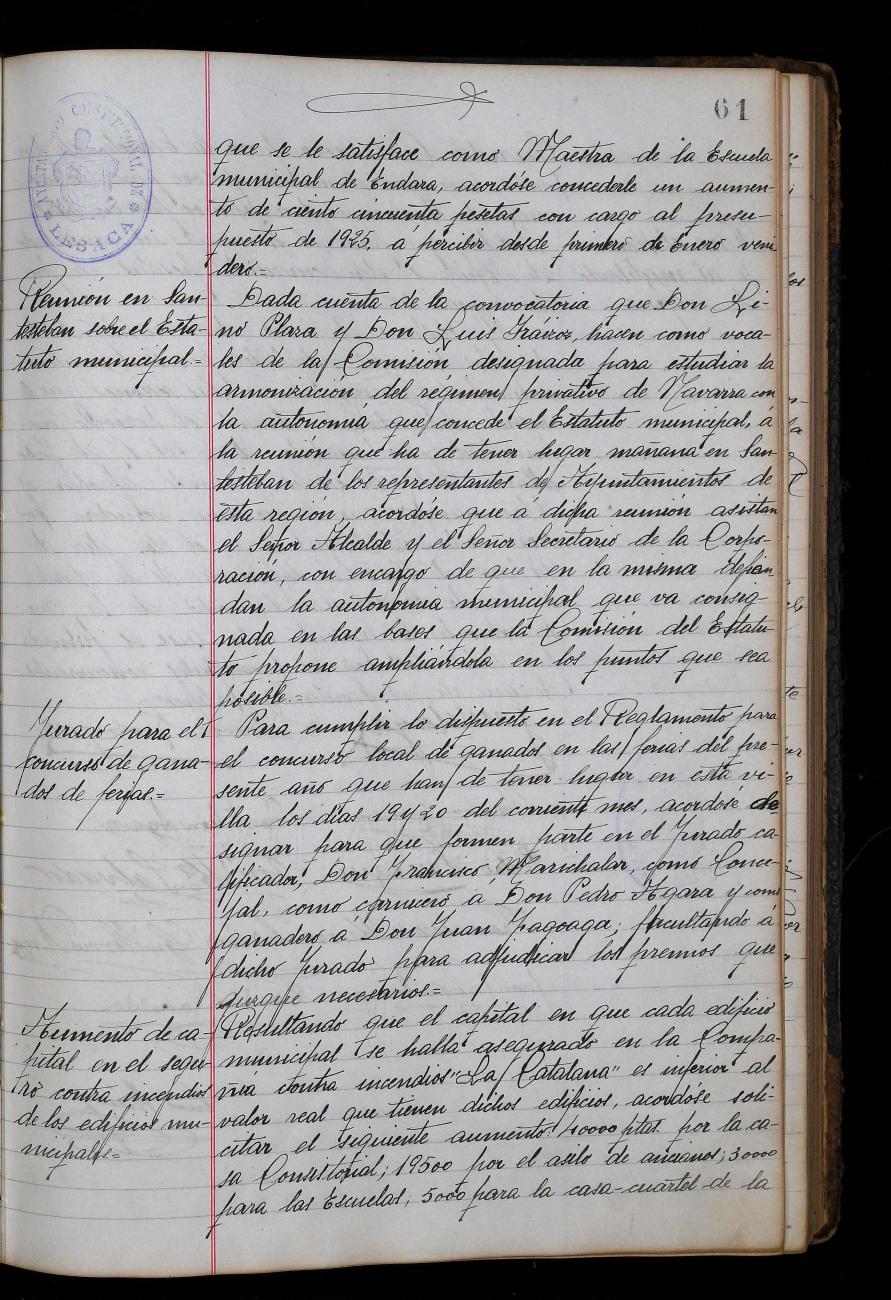 61
AYUNTAMIENTO CONSTITUCIONAL DE
LESACA
que se le satisface como Maestra de la Escuela
municipal de Endara, acordóse concederle un aumen-
to de ciento cincuenta pesetas con cargo al presu-
puesto de 1925, á percibir desde primero de Enero veni
dero.=
Reunión en San-
testeban sobre el Esta-
tuto municipal.=
Dada cuenta de la convocatoria que Don Li-
no Plaza y Don Luis Iráizoz, hacen como voca-
les de la Comisión designada para estudiar la
armonización del régimen privativo de Navarra con
la autonomía que concede el Estatuto municipal, á
la reunión que ha de tener lugar mañana en San-
testeban de los representantes de Ayuntamientos de
esta región, acordóse que á dicha reunión asistan
el Señor Alcalde y el Señor Secretario de la Corpo-
ración, con encargo de que en la misma defien
dan la autonomia municipal que va consig-
nada en las bases que la Comisión del Estatu-
to propone ampliándola en los puntos que sea
posible.=
Jurado para el
concurso de gana-
dos de ferias.=
Para cumplir lo dispuesto en el Reglamento para
el concurso local de ganados en las ferias del pre-
sente año que han de tener lugar en esta vi-
lla los días 19 y 20 del corriente mes, acordóse de
signar para que formen parte en el Jurado ca-
lificador, Don Francisco Marichalar, como Conce-
jal, como carnicero á Don Pedro Agara y como
ganadero á Don Juan Yagoaga; facultando á
dicho Jurado para adjudicar los premios que
juzgue necesarios.=
Aumento de ca-
pital en el segu-
ro contra incendios
de los edificios mu-
nicipales=
Resultando que el capital en que cada edificio
municipal se halla asegurado en la Compa-
ñia contra incendios "La Catalana" es inferior al
valor real que tienen dichos edificios, acordóse soli-
citar el siguiente aumento: 40000 ptas. por la ca-
sa Consistorial; 19500 por el asilo de ancianos; 30000
para las Escuelas; 5000 para la casa-cuartel de la